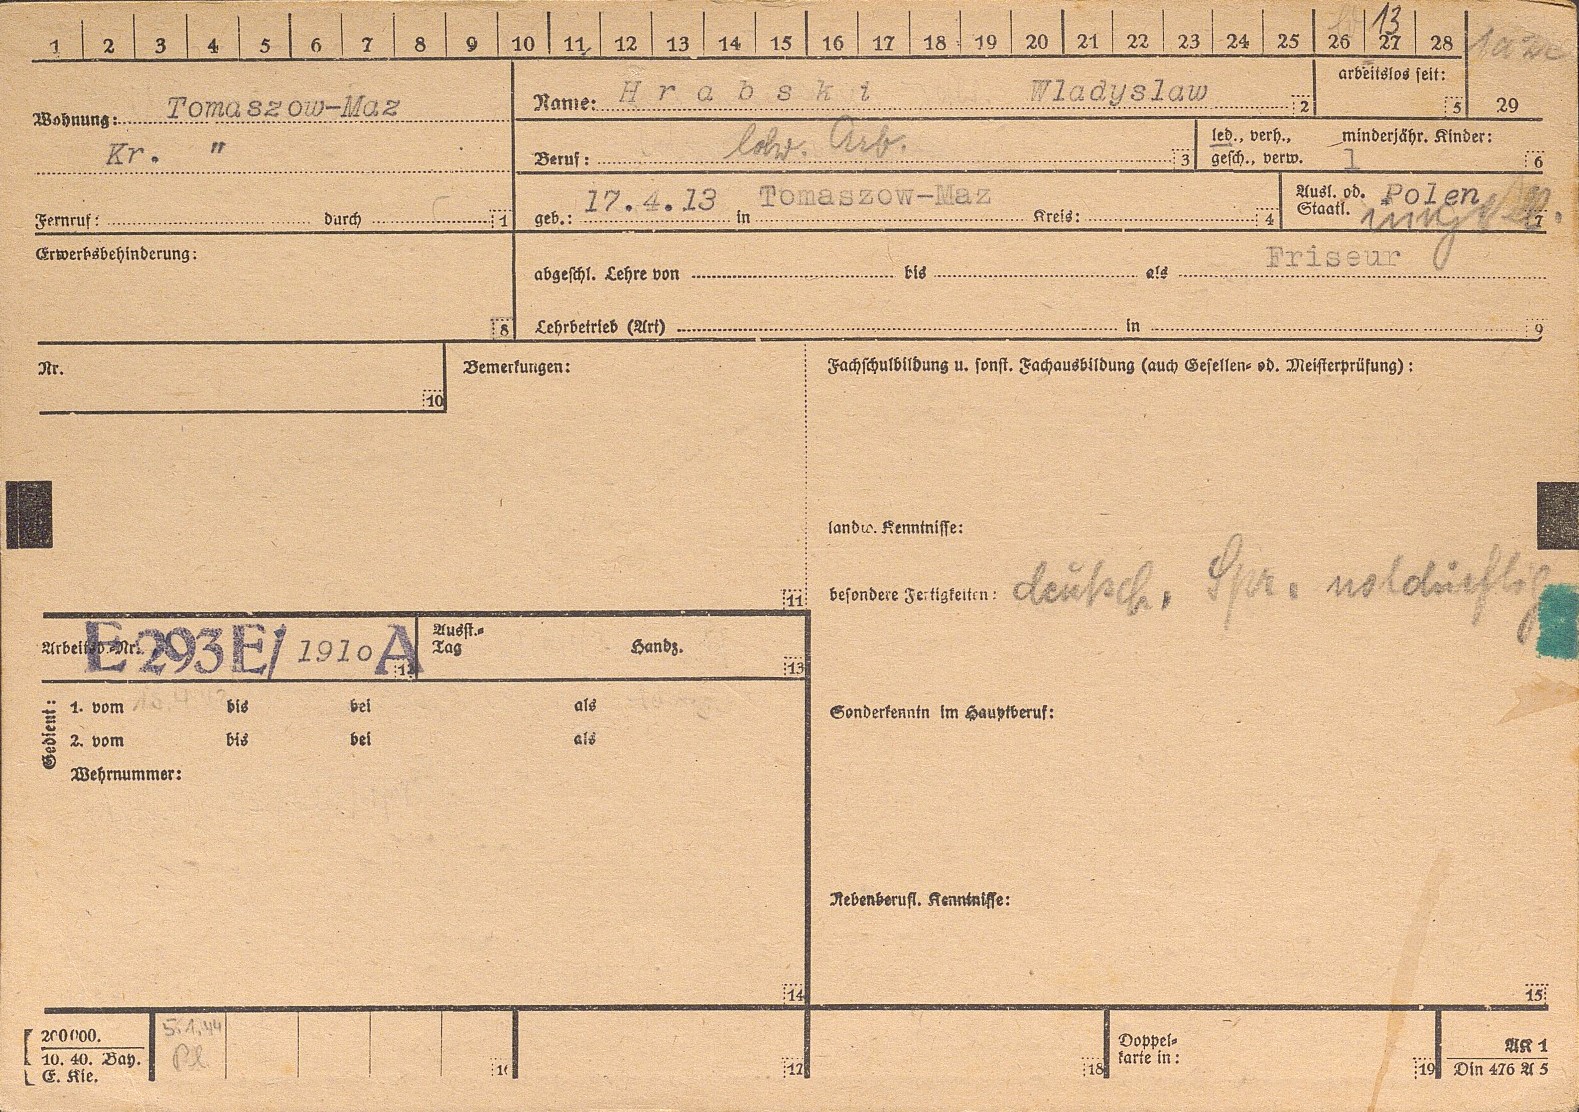 1 2 3 4 5 6 7 8 9 10 11 12 13 14 15 16 17 18 19 20 21 22 23 24 25 26 27 28
13
arbeitslos seit:
5
29
Wohnung: Tomaszow-Maz
Kr. "
Fernruf: durch 1
Name: Hrabski Wladyslaw 2
Beruf: ldw. Arb. 3
led., verh., minderjähr. Kinder:
gesch., verw. 1 6
geb.: 17.4.13 in Tomaszow-Maz Kreis: 4
Ausl. od. Polen
Staatl. 7
Erwerbsbehinderung:
8
abgeschl. Lehre von bis als Friseur
Lehrbetrieb (Art) in 9
Nr.
10
Bemerkungen:
11
Fachschulbildung u. sonst. Fachausbildung (auch Gesellen- od. Meisterprüfung):
landw. Kenntnisse:
besondere Fertigkeiten: deutsch. Spr. notdürftig
Arbeitsb.-Nr. E 293 E/ 1910 A 12
Ausst.-
Tag Handz. 13
Gedient:
1. vom bis bei als
2. vom bis bei als
Wehrnummer:
14
Sonderkenntn im Hauptberuf:
Nebenberufl. Kenntnisse:
15
200000.
10. 40. Bay.
E. Kie.
5.1.44
16
17
18
Doppel-
karte in:
19
AK 1
Din 476 A 5